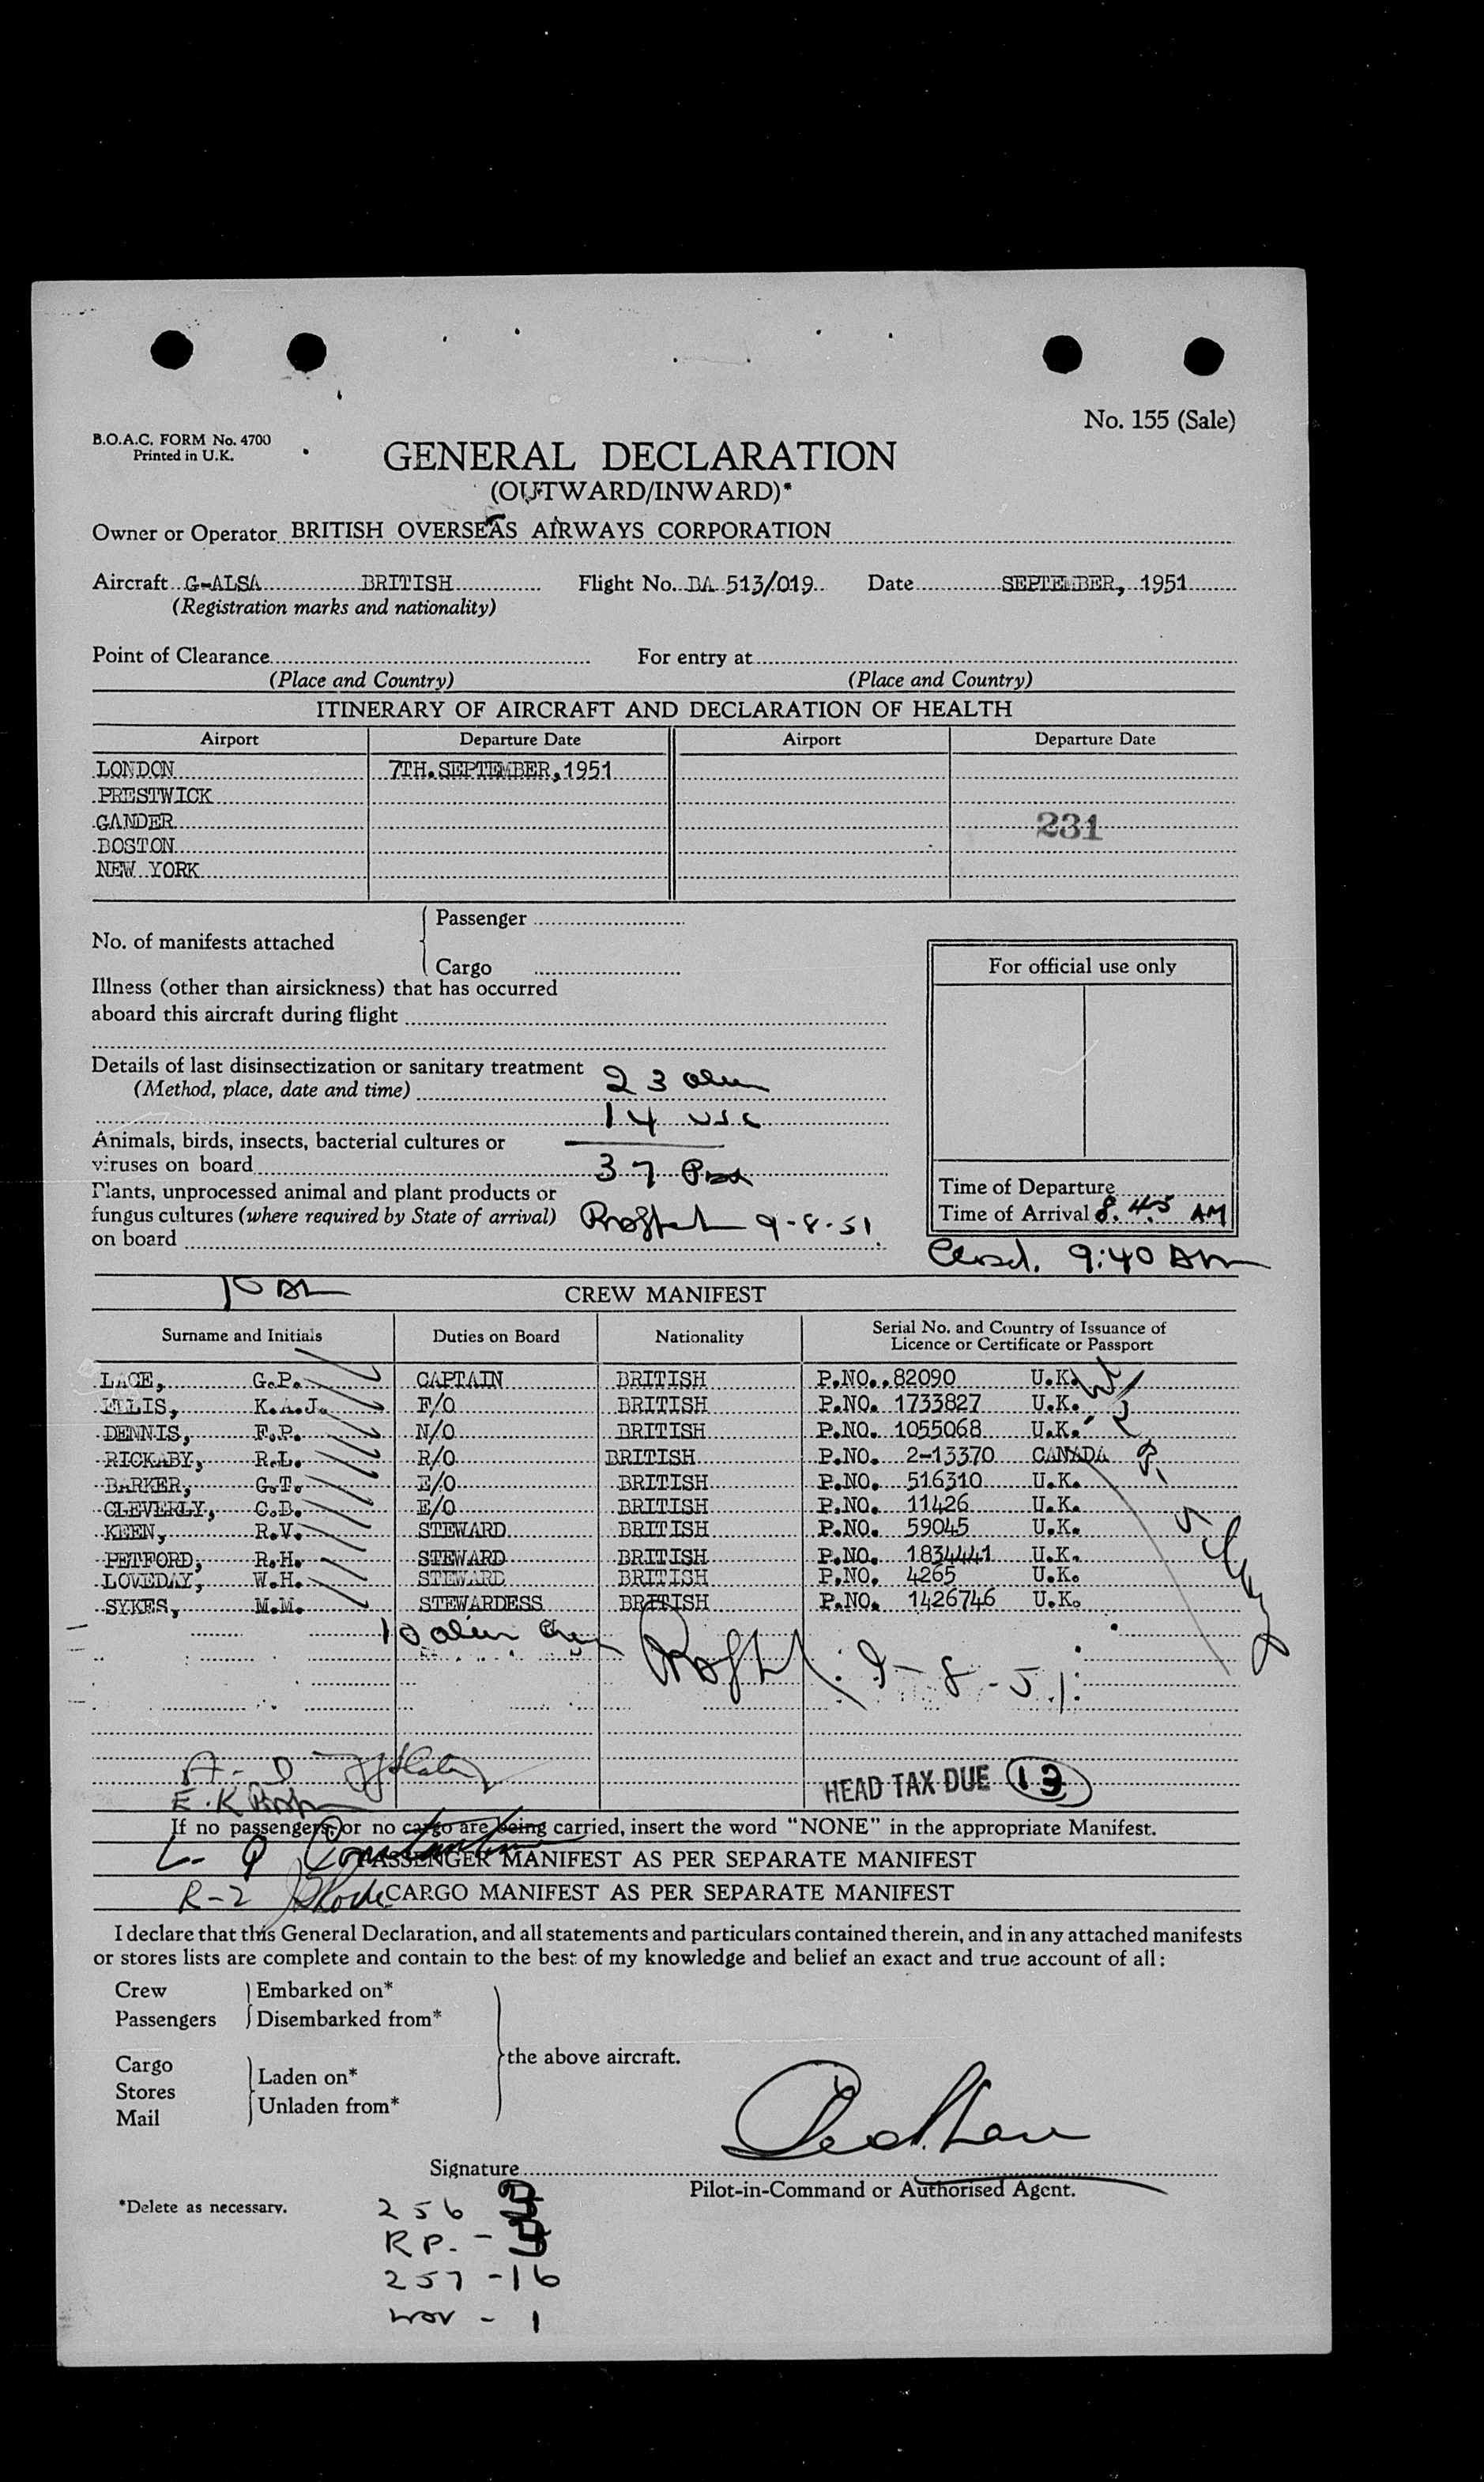 No. 155 (Sale)
B.O.A.C. FORM No. 4700
Printed in U.K.
GENERAL DECLARATION
(OUTWARD/INWARD)*
Owner or Operator BRITISH OVERSEAS AIRWAYS CORPORATION
Aircraft G-ALSA BRITISH Flight No. BA 513/019 Date SEPTEMBER, 1951
(Registration marks and nationality)
Point of Clearance For entry at
(Place and Country) (Place and Country)
ITINERARY OF AIRCRAFT AND DECLARATION OF HEALTH
Airport Departure Date Airport Departure Date
LONDON 7TH. SEPTEMBER, 1951
PRESTWICK
GANDER 231
BOSTON
NEW YORK
No. of manifests attached
Passenger
Cargo
For official use only
Illness (other than airsickness) that has occurred
aboard this aircraft during flight
Details of last disinsectization or sanitary treatment 23
(Method, place, date and time)
14 usc
Animals, birds, insects, bacterial cultures or
viruses on board 37
Plants, unprocessed animal and plant products or
fungus cultures (where required by State of arrival) 9-8-51
on board
Time of Departure
Time of Arrival 8.45 AM
Closed. 9:40 AM
CREW MANIFEST
Surname and Initials Duties on Board Nationality Serial No. and Country of Issuance of
Licence or Certificate or Passport
LACE, G.P. CAPTAIN BRITISH P.NO. 82090 U.K.
ELLIS, K.A.J. F/O BRITISH P.NO. 1733827 U.K.
DENNIS, F.P. N/O BRITISH P.NO. 1055068 U.K.
RICKABY, R.L. R/O BRITISH P.NO. 2-13370 CANADA
BARKER, G.T. E/O BRITISH P.NO. 516310 U.K.
CLEVERLY, C.D. E/O BRITISH P.NO. 11426 U.K.
KEEN, R.V. STEWARD BRITISH P.NO. 59045 U.K.
PETFORD, R.H. STEWARD BRITISH P.NO. 1834441 U.K.
LOVEDAY, W.H. STEWARD BRITISH P.NO. 4265 U.K.
SYKES, M.M. STEWARDESS BRITISH P.NO. 1426746 U.K.
10 alien crew
9-8-51
HEAD TAX DUE 13
If no passengers, or no cargo are being carried, insert the word "NONE" in the appropriate Manifest.
PASSENGER MANIFEST AS PER SEPARATE MANIFEST
R-2 CARGO MANIFEST AS PER SEPARATE MANIFEST
I declare that this General Declaration, and all statements and particulars contained therein, and in any attached manifests
or stores lists are complete and contain to the best of my knowledge and belief an exact and true account of all:
Crew Embarked on*
Passengers Disembarked from*
the above aircraft.
Cargo
Stores Laden on*
Mail Unladen from*
Signature
Pilot-in-Command or Authorised Agent.
*Delete as necessary.
256
RP. -
257 - 16
- 1